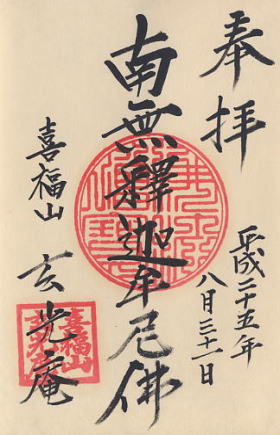 奉拝
平成二十五年
八月三十一日
南無釋迦牟尼佛
喜福山
玄光庵
喜福山
玄光庵